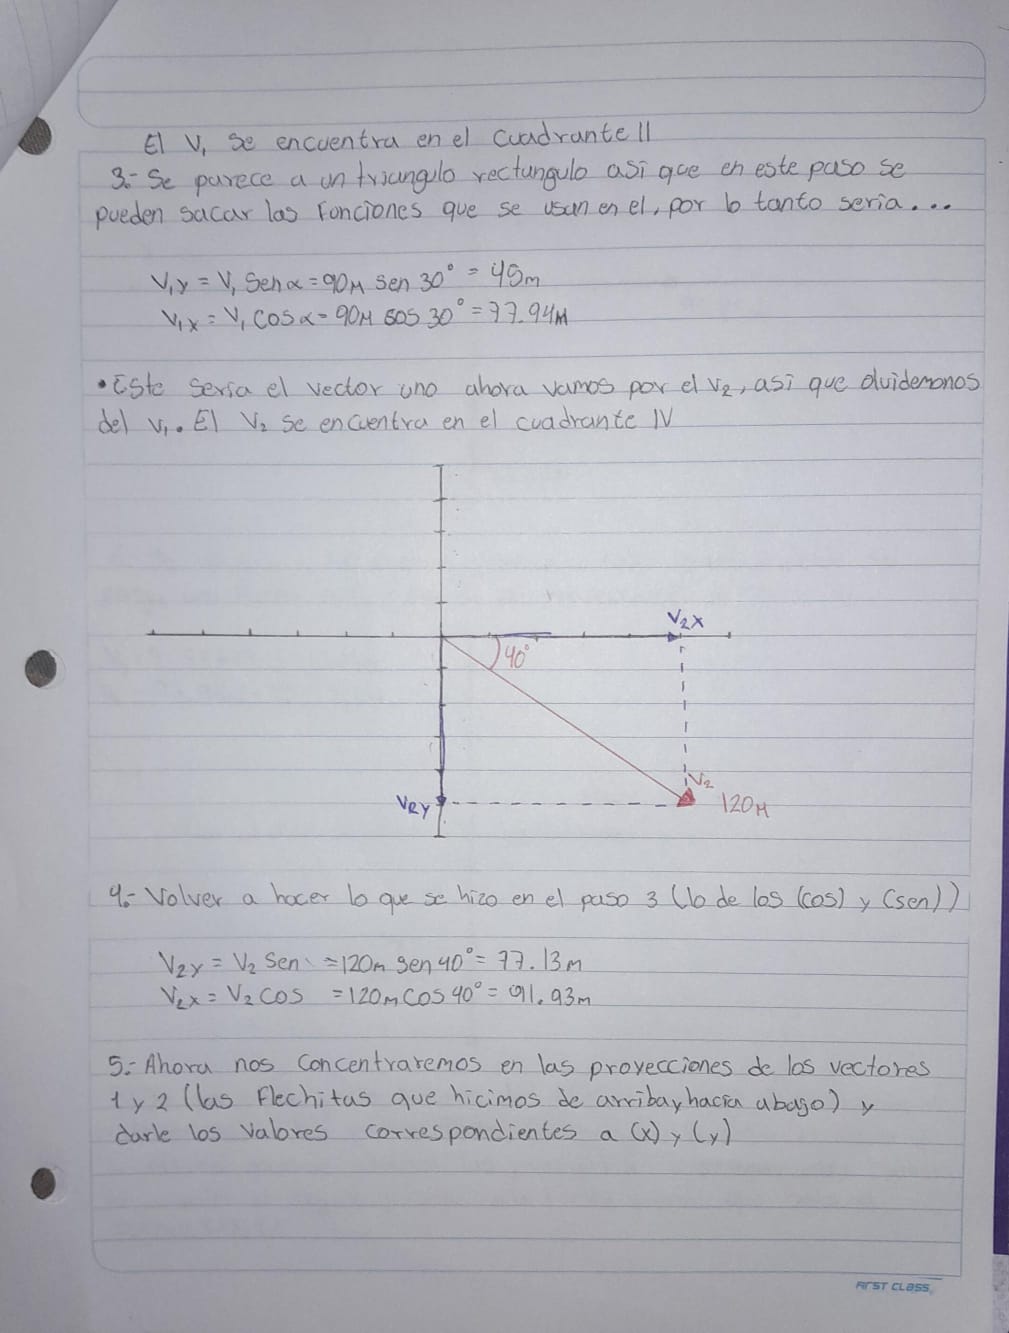 El V₁ Se encuentra en el Cuadrante II
3.- Se parece a un triangulo rectangulo asi que en este paso se
pueden sacar las Funciones que se usan en el, por lo tanto seria....
V₁y = V₁ Sen α = 90M sen 30° = 45m
V₁x = V₁ Cos α = 90M cos 30° = 77.94M
• Este seria el vector uno ahora vamos por el V₂, asi que olvidemonos
del V₁. El V₂ se encuentra en el cuadrante IV
V₂x
40°
V₂
V₂y
120M
4.- Volver a hacer lo que se hizo en el paso 3 (lo de los (cos) y (sen))
V₂y = V₂ Sen = 120m sen 40° = 77.13m
V₂x = V₂ Cos = 120m Cos 40° = 91.93m
5.- Ahora nos concentraremos en las proyecciones de los vectores
1 y 2 (las Flechitas que hicimos de arriba y hacia abajo) y
darle los valores correspondientes a (x) y (y)
FIRST CLASS